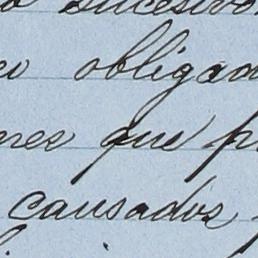 sucesivo
obligad
que p
causados